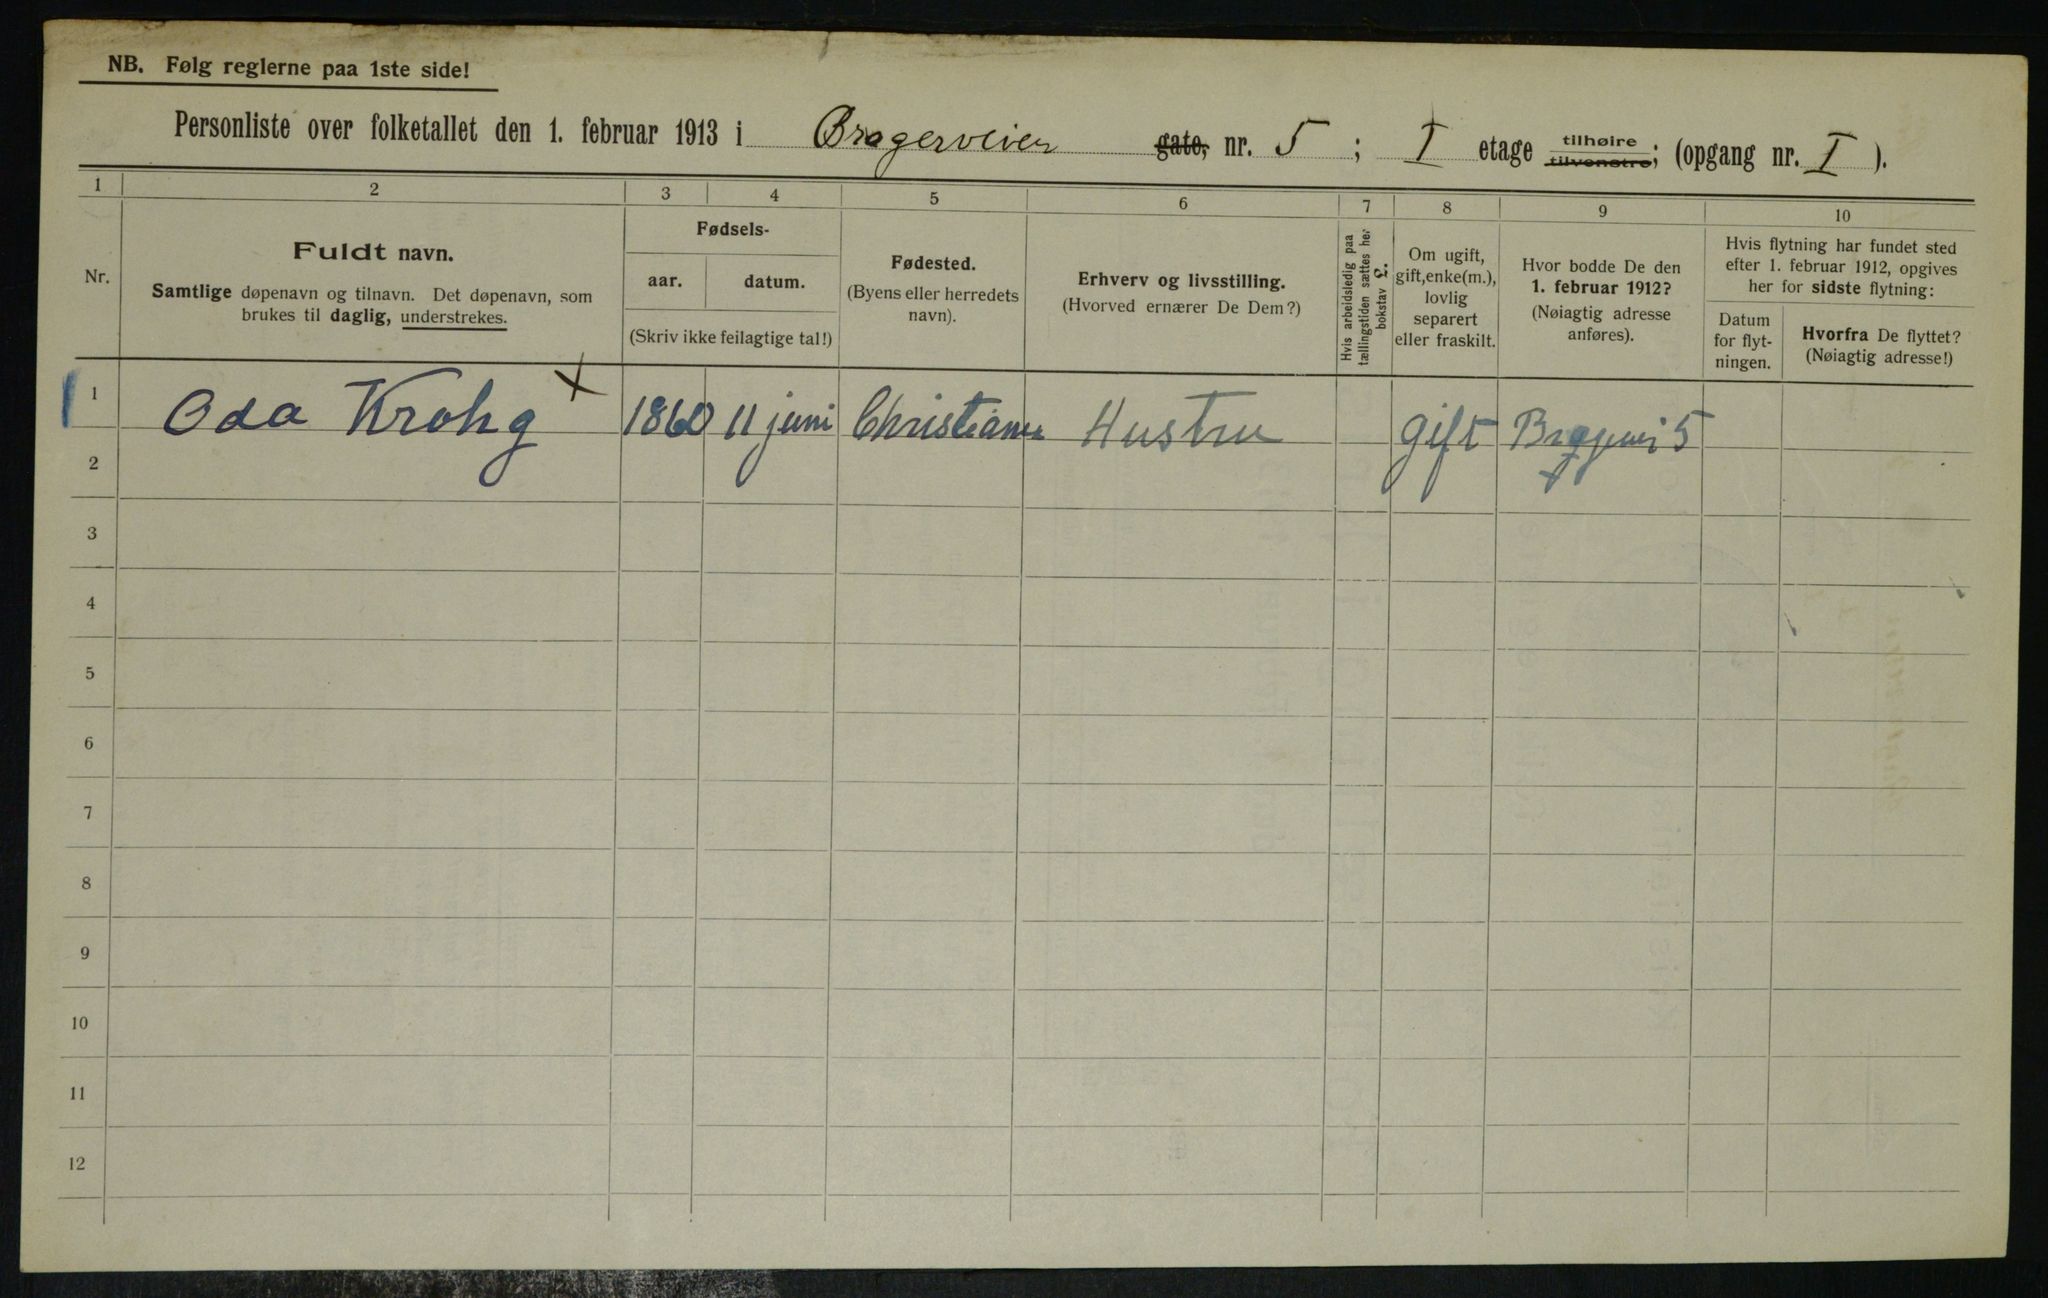 NB. Følg reglerne paa 1ste side!
Personliste over folketallet den 1. februar 1913 i Bragerveien gate, nr. 5 ; I etage tilhøire tilvenstre; (opgang nr. I ).
1 2 3 4 5 6 7 8 9 10
Nr.
Fuldt navn.
Samtlige døpenavn og tilnavn. Det døpenavn, som
brukes til daglig, understrekes.
Fødsels-
aar. datum.
(Skriv ikke feilagtige tal!)
Fødested.
(Byens eller herredets
navn).
Erhverv og livsstilling.
(Hvorved ernærer De Dem?)
Hvis arbeidsledig paa
tællingstiden sættes her
bokstav £.
Om ugift,
gift, enke(m.),
lovlig
separert
eller fraskilt.
Hvor bodde De den
1. februar 1912?
(Nøiagtig adresse
anføres).
Hvis flytning har fundet sted
efter 1. februar 1912, opgives
her for sidste flytning:
Datum
for flyt-
ningen.
Hvorfra De flyttet?
(Nøiagtig adresse!)
1 Oda Krohg x 1860 11 juni Christiania Hustru gift 5
2
3
4
5
6
7
8
9
10
11
12